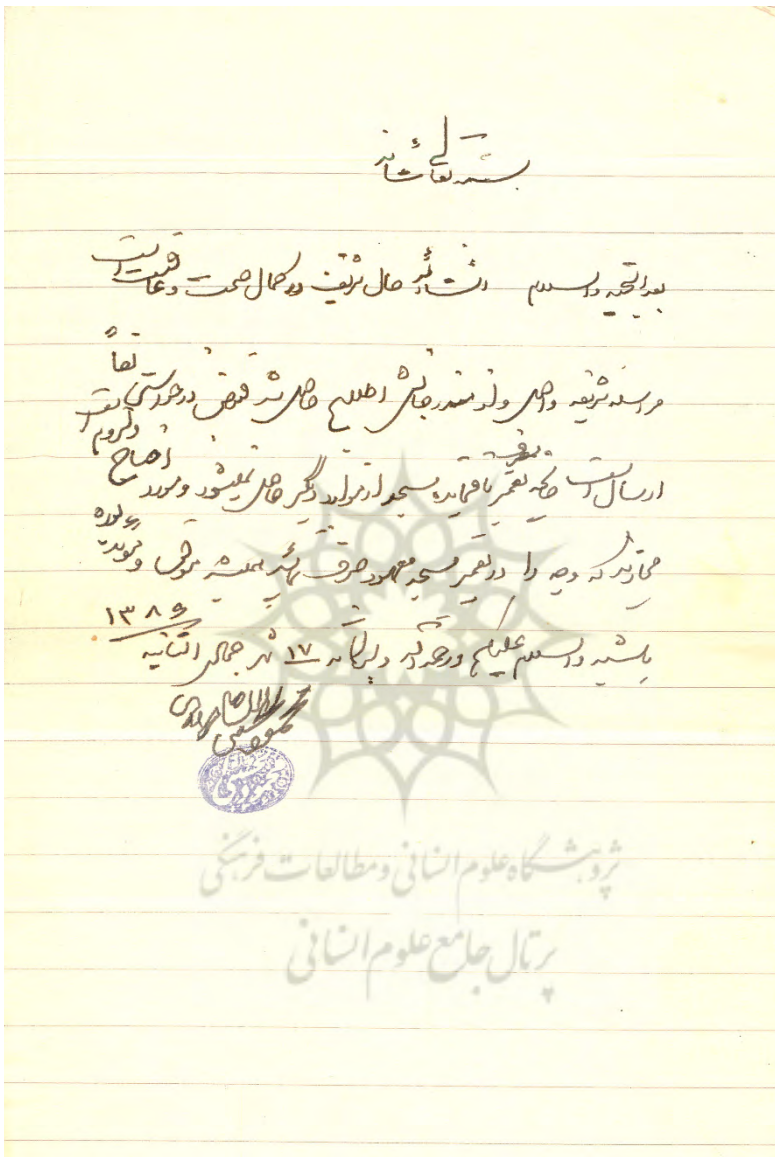 بسمه تعالی شأنه
بعد التحیه والسلام انشاءالله حال شریف در کمال صحت و عافیت است
مراسله شریفه واصل و از مندرجاتش اطلاع حاصل شد قبوض درخواستی لفاً
ارسال است چنانچه تعمیر باقیمانده مسجد از موارد دیگر حاصل نمیشود و مورد احتیاج ولزوم است
مجازید که وجه را در تعمیر مسجد معهود صرف نمائید همیشه موفق و موید بوده
باشید والسلام علیکم ورحمة الله وبرکاته ۱۷ شهر جمادی الثانیه ۱۳۸۶
پژوهشگاه علوم انسانی و مطالعات فرهنگی
پرتال جامع علوم انسانی